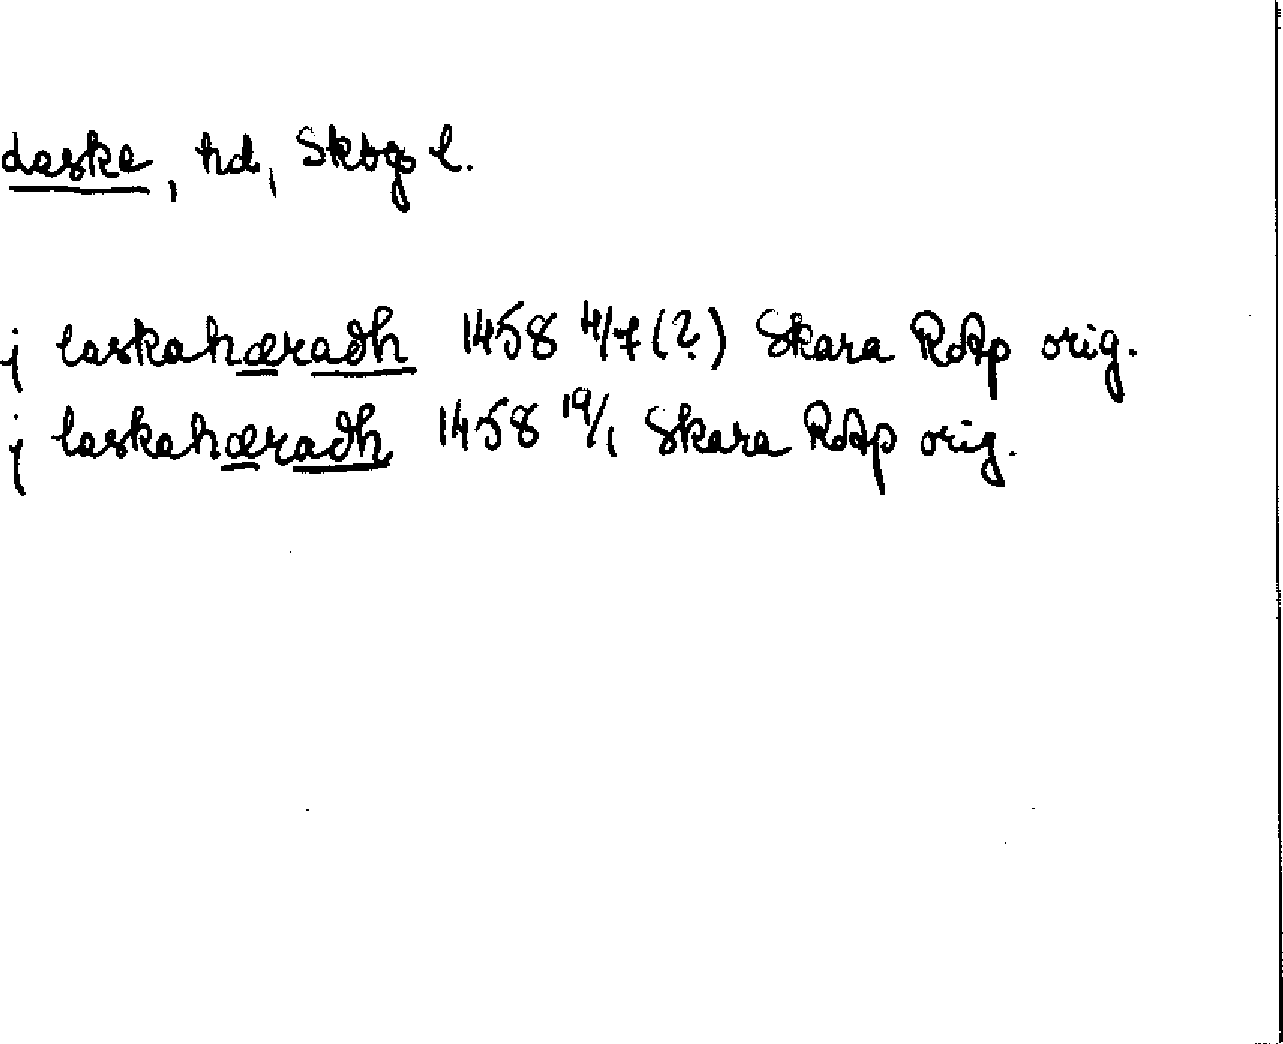 Laske, hd, Skbgs l.
j laskahæradh 1458 4/7 (?) Skara RAp orig.
j laskahæradh 1458 19/1 Skara RAp orig.